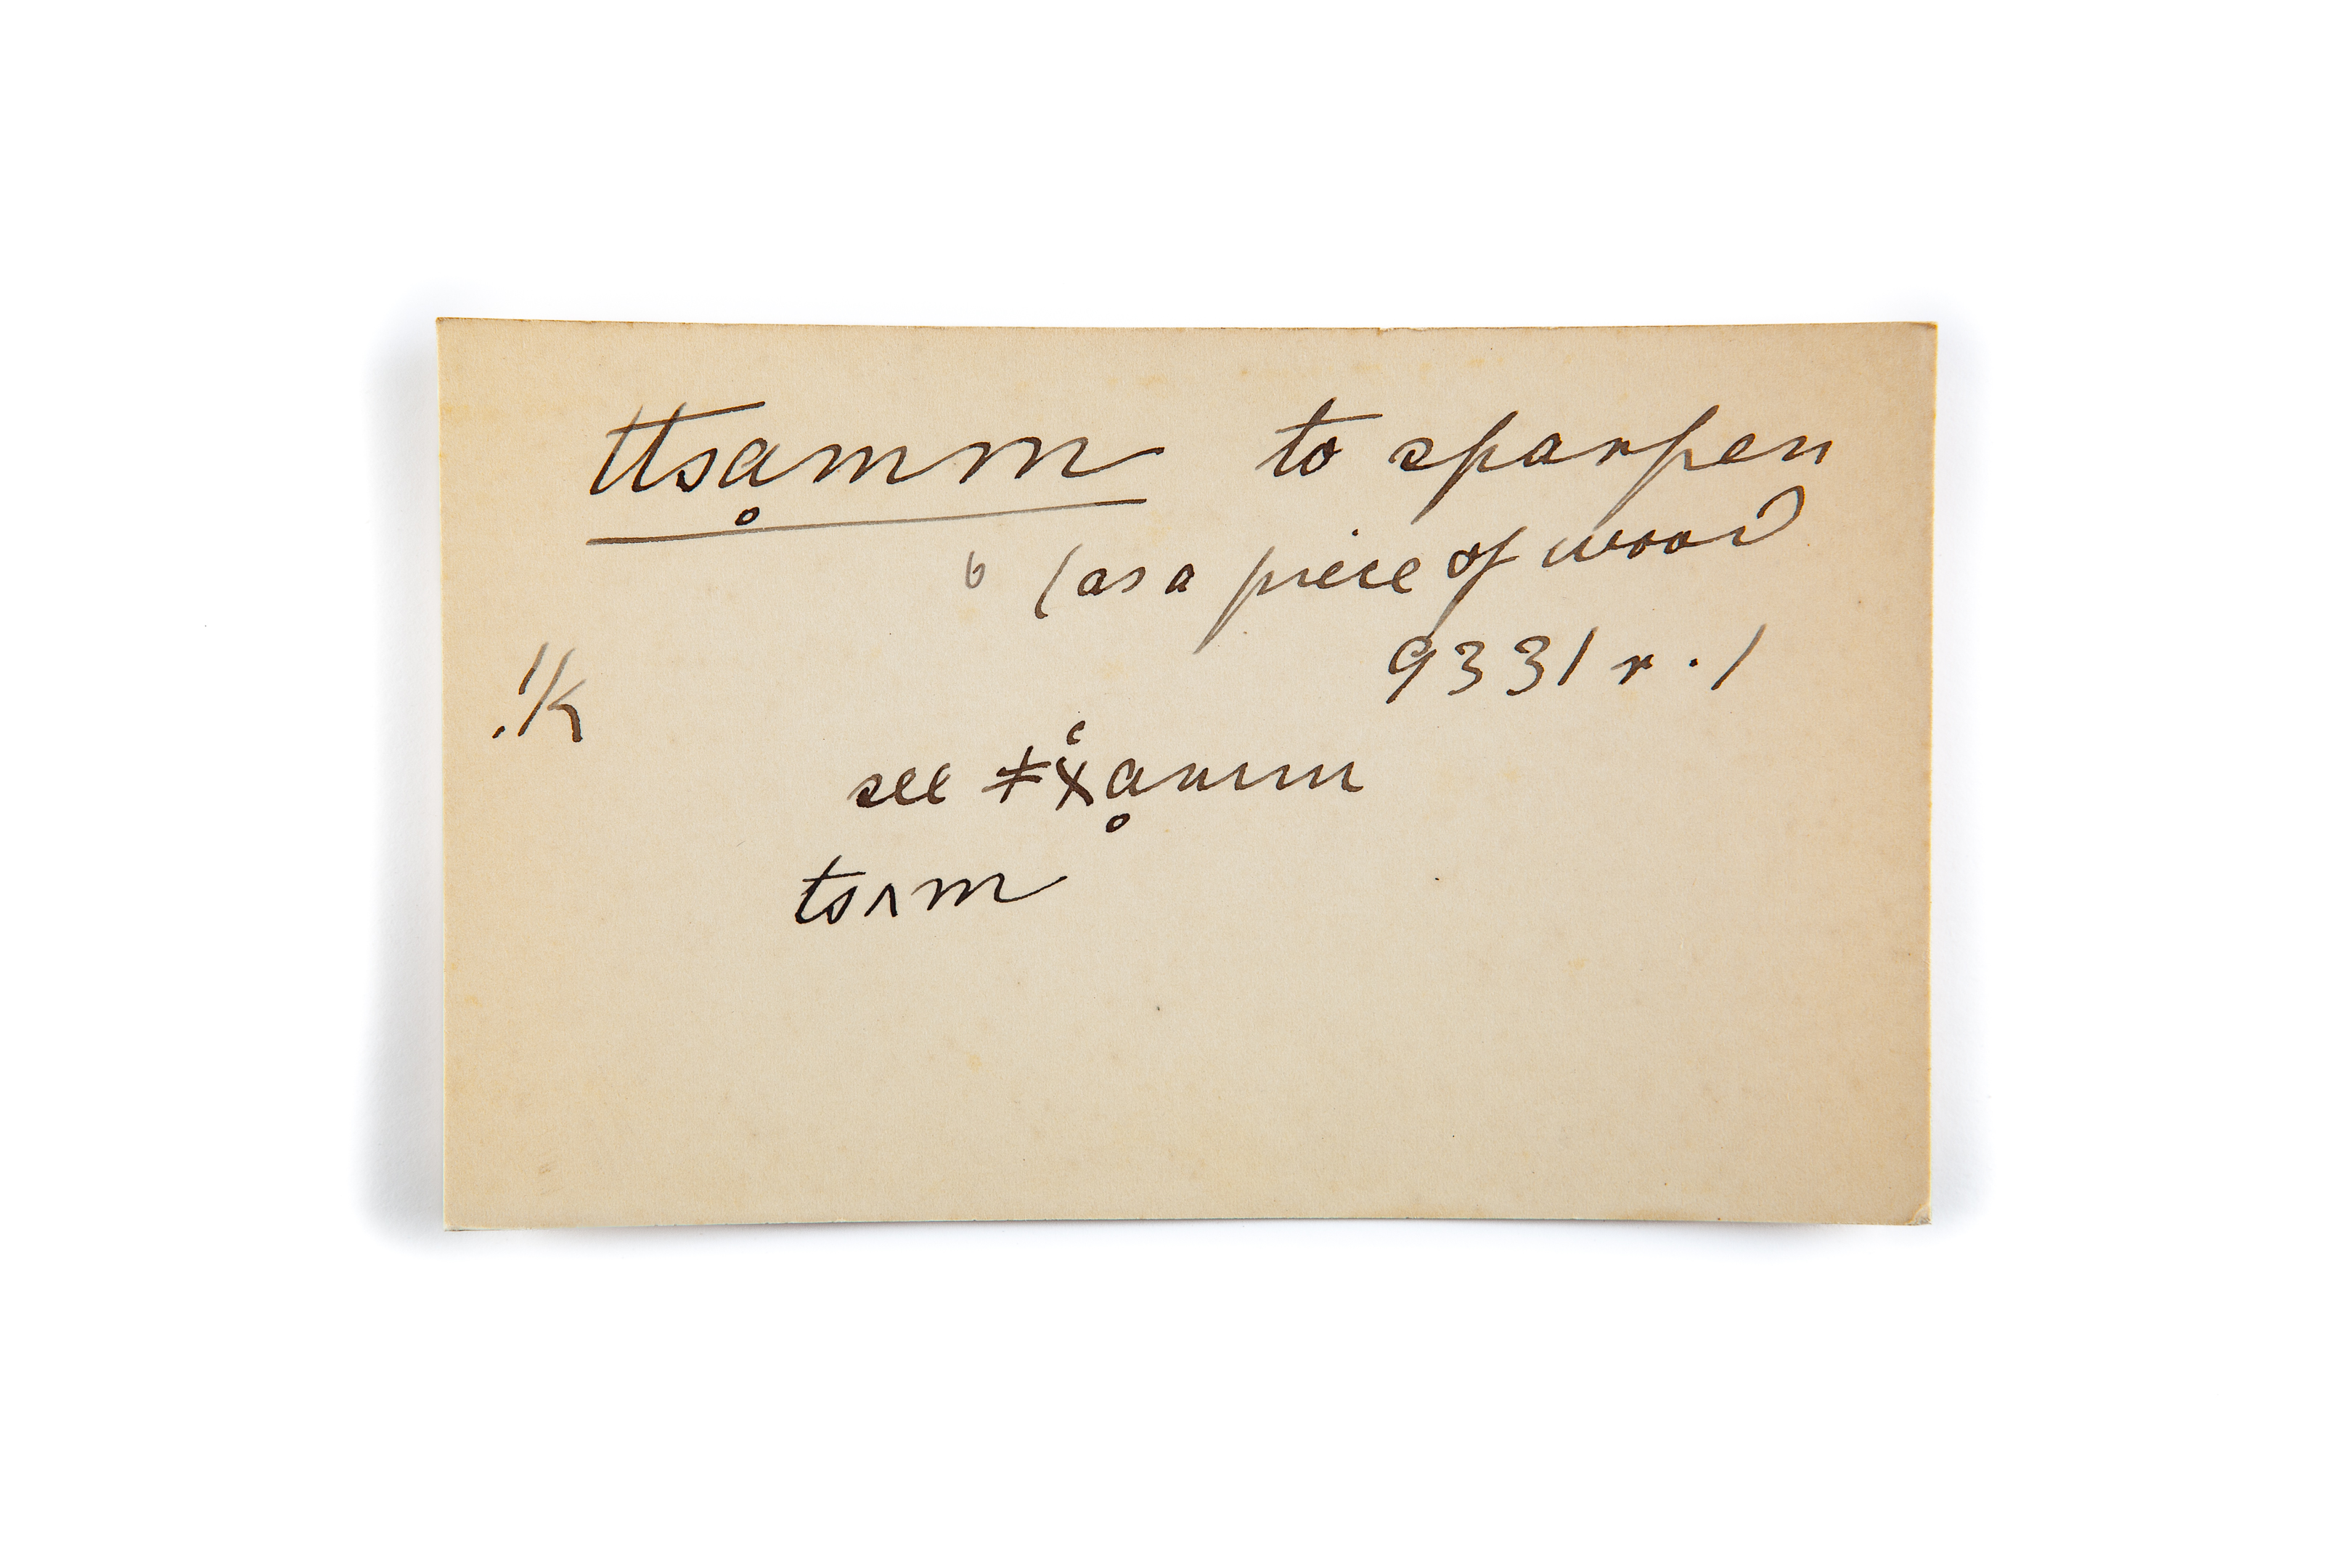 ttsḁmm to sharpen
(as a piece of wood
9331 r. 1
!k
see ǂχ̔ḁmm
tsʌm